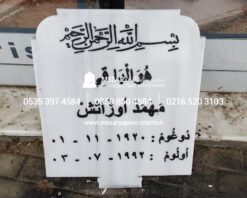 بسم الله الرحمن الرحيم
هو الباقي
مهمد اوزاتش
0535 397 4584 0850 850 4584 0216 520 3103
www.mezaryapimi.istanbul
دوغوم : ١٩٢٠ - ١١ - ٠١
اولوم : ١٩٩٢ - ٠٧ - ٠٣